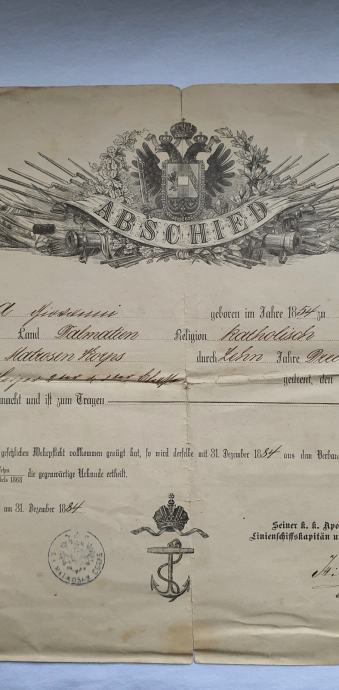 ABSCHIED
Giovanni geboren im Jahre 1854 zu
Land Dalmatien Religion Katholisch
Matrosen Korps durch Zehn Jahre
gedient, den
macht und ist zum Tragen
gesetzlichen Wehrpflicht vollkommen genügt hat, so wird derselbe mit 31. Dezember 1884 aus dem Verban
1868 die gegenwärtige Urkunde ertheilt.
am 31. Dezember 1884
Seiner k. k. Apo
Linienschiffskapitän u
K. K. MATROSEN CORPS